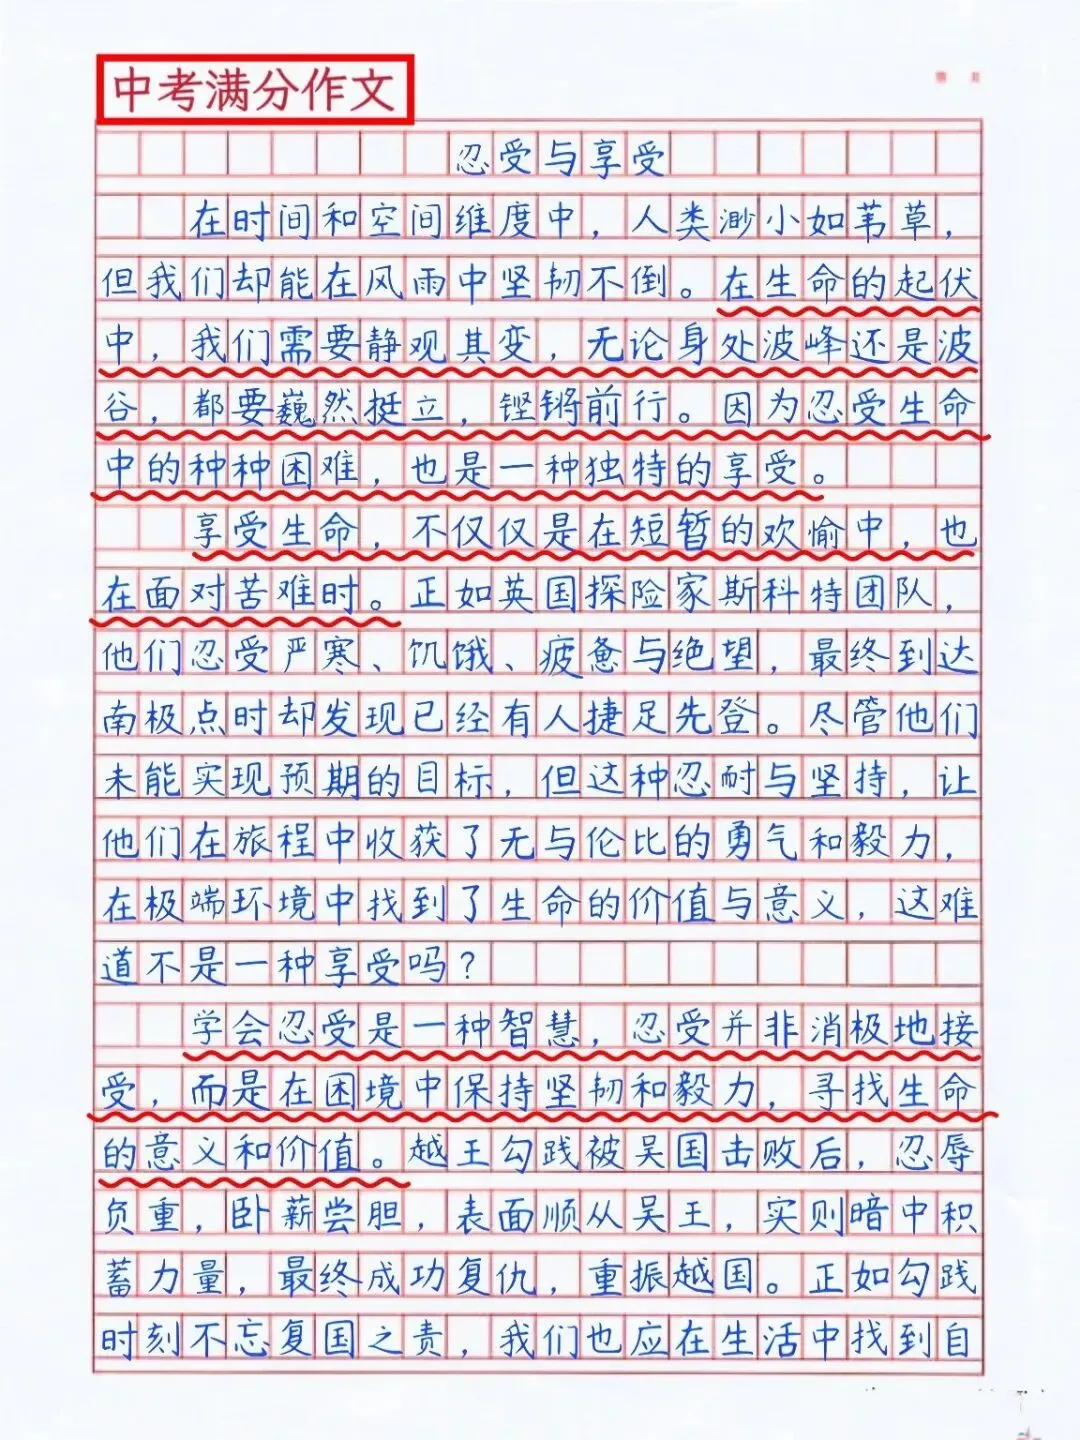 中考满分作文
忍受与享受
在时间和空间维度中，人类渺小如苇草，
但我们却能在风雨中坚韧不倒。在生命的起伏
中，我们需要静观其变，无论身处波峰还是波
谷，都要巍然挺立，铿锵前行。因为忍受生命
中的种种困难，也是一种独特的享受。
享受生命，不仅仅是在短暂的欢愉中，也
在面对苦难时。正如英国探险家斯科特团队，
他们忍受严寒、饥饿、疲惫与绝望，最终到达
南极点时却发现已经有人捷足先登。尽管他们
未能实现预期的目标，但这种忍耐与坚持，让
他们在旅程中收获了无与伦比的勇气和毅力，
在极端环境中找到了生命的价值与意义，这难
道不是一种享受吗？
学会忍受是一种智慧，忍受并非消极地接
受，而是在困境中保持坚韧和毅力，寻找生命
的意义和价值。越王勾践被吴国击败后，忍辱
负重，卧薪尝胆，表面顺从吴王，实则暗中积
蓄力量，最终成功复仇，重振越国。正如勾践
时刻不忘复国之责，我们也应在生活中找到自